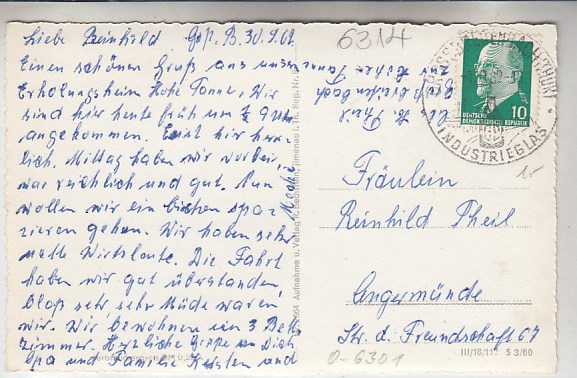 Liebe Reinhild Goß. B. 30.9.62
Einen schönen Gruß aus unserem
Erholungsheim Hohe Tanne. Wir
sind hier heute früh um ½ 9 Uhr
angekommen. Es ist hier herr-
lich. Mittag haben wir vorbei,
war reichlich und gut. Nun
wollen wir ein bischen spa-
zieren gehen. Wir haben sehr
nette Wirtsleute. Die Fahrt
haben wir gut überstanden,
bloß sehr, sehr Müde waren
wir. Wir bewohnen ein 3 Bett-
zimmer. Herzliche Grüße an Dich
Opa und Familie Kirsten und
6314
DEUTSCHE
DEMOKRATISCHE REPUBLIK
10
INDUSTRIEGLAS
Fräulein
Reinhild Theil
Angermünde
Str. d. Freundschaft 67
O-6301
III/18/117 S 3/60